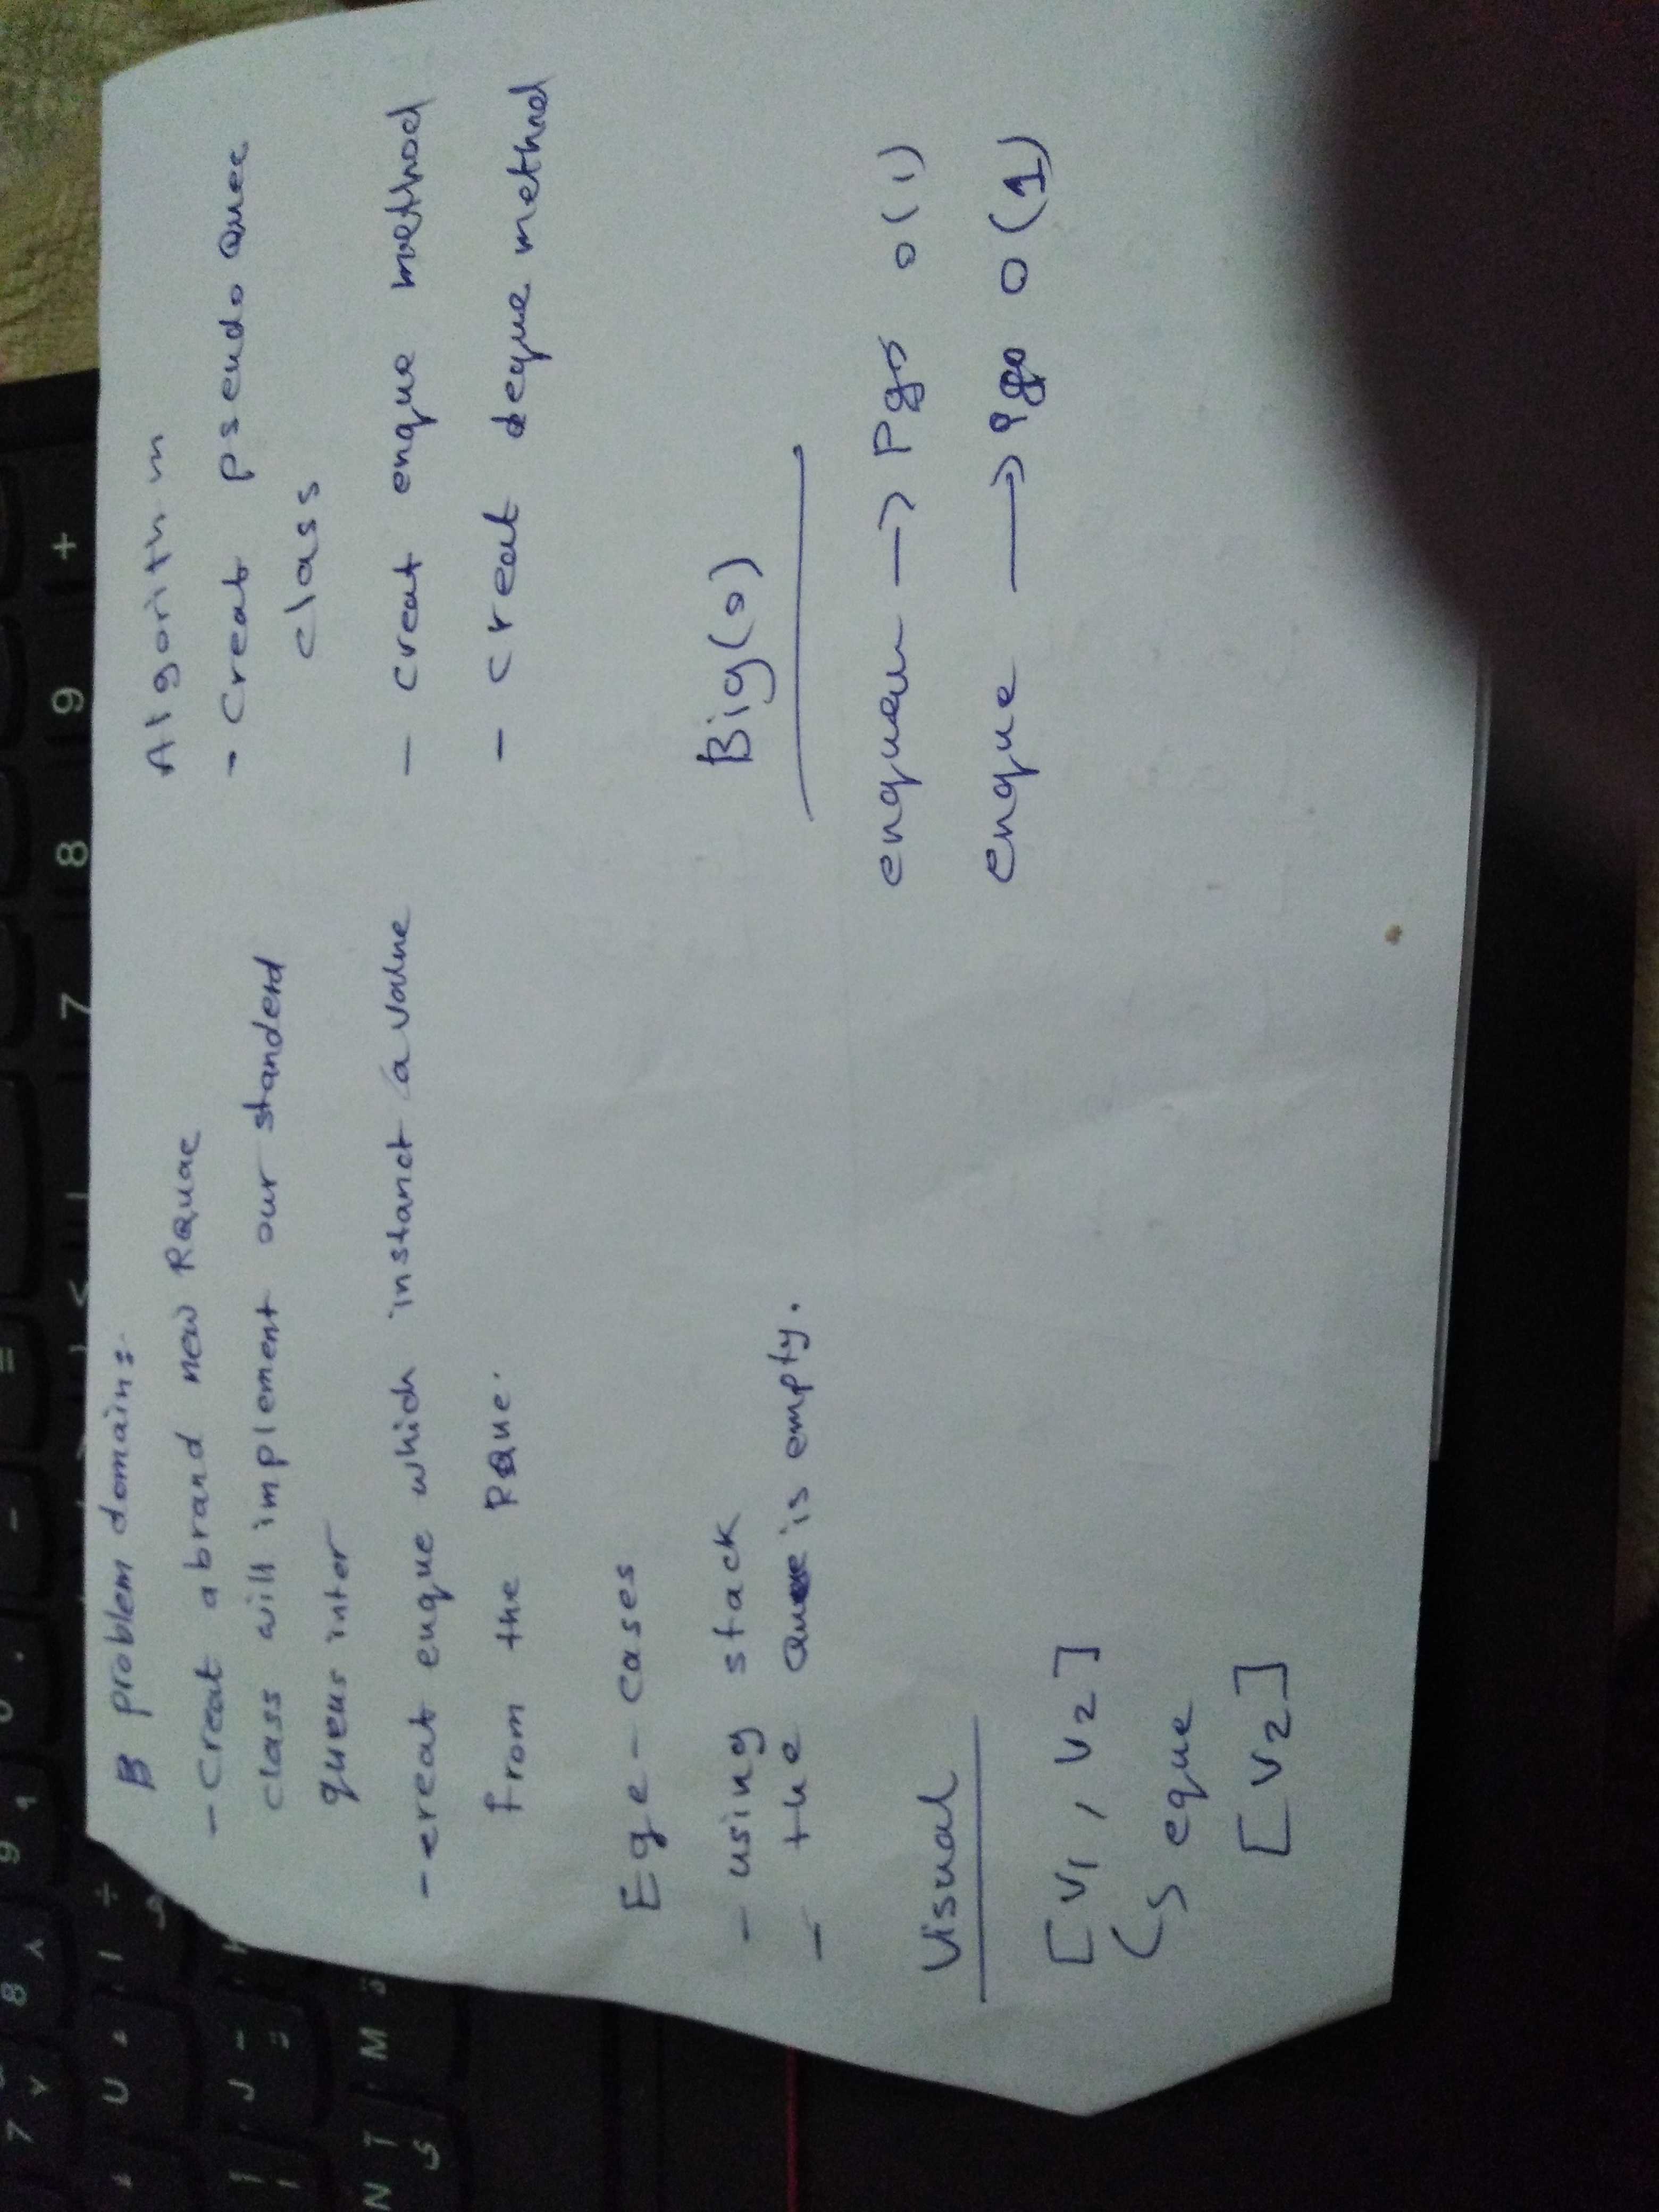 problem domain:
- Creat a brand new PQuae
class will implement our standerd
queus inter
- creat enque which instanct a value
from the PQue.
Ege - cases
- using stack
- the Queue is empty.
Visual
[V1, V2]
eque
[V2]
Algorithm
- Creat pseudo Quee
class
- creat enque method
- creat deque method
Big(o)
→ o(1)
enque → o(1)
+
9
8
7